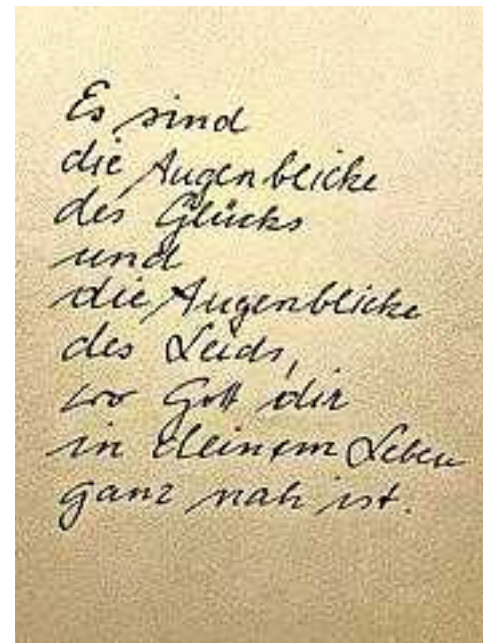 Es sind
die Augenblicke
des Glücks
und
die Augenblicke
des Leids,
wo Gott dir
in deinem Leben
ganz nah ist.